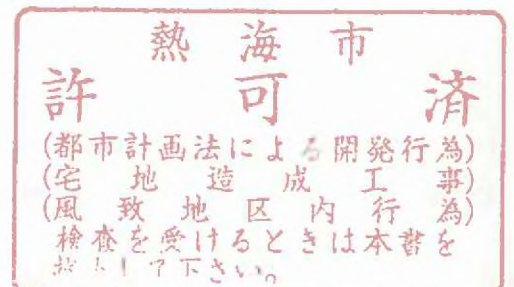 熱海市
許可済
(都市計画法による開発行為)
(宅地造成工事)
(風致地区内行為)
検査を受けるときは本書を
して下さい。